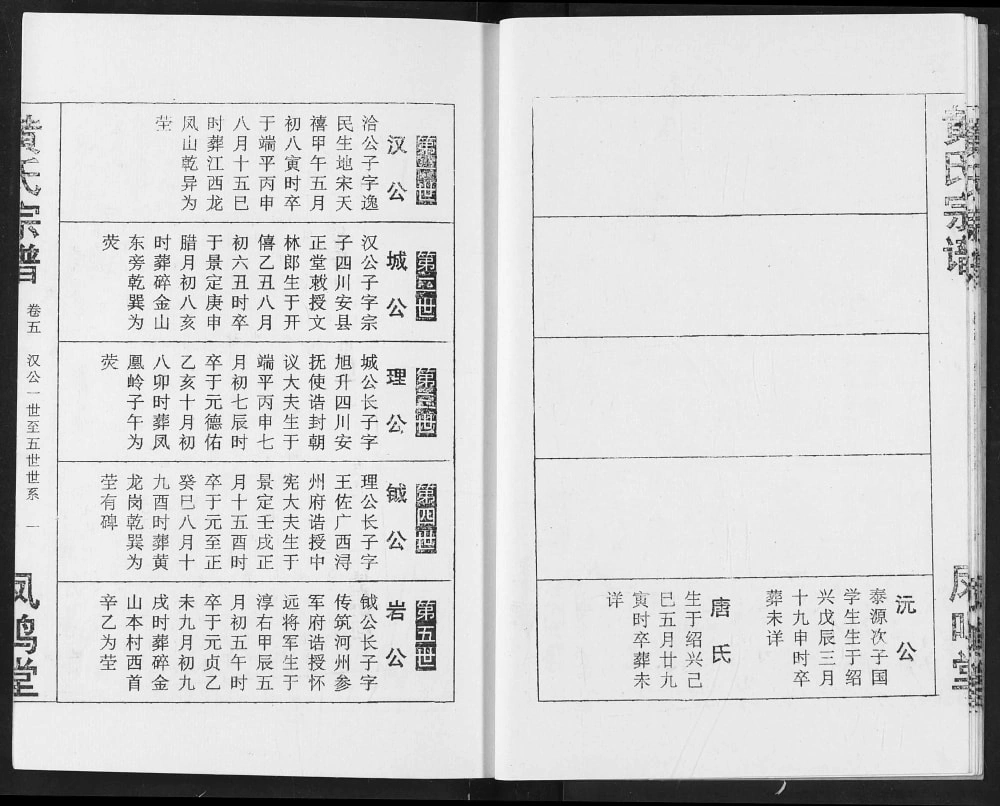 黄氏宗谱
凤鸣堂
沅公
泰源次子国
学生生于绍
兴戊辰三月
十九申时卒
葬未详
唐氏
生于绍兴己
巳五月廿九
寅时卒葬未
详
第一世
汉公
洽公子字逸
民生地宋天
禧甲午五月
初八寅时卒
于端平丙申
八月十五巳
时葬江西龙
凤山乾异为
茔
第二世
城公
汉公子字宗
子四川安县
正堂敕授文
林郎生于开
僖乙丑八月
初六丑时卒
于景定庚申
腊月初八亥
时葬碎金山
东旁乾巽为
荧
第三世
理公
城公长子字
旭升四川安
抚使诰封朝
议大夫生于
端平丙申七
月初七辰时
卒于元德佑
乙亥十月初
八卯时葬凤
凰岭子午为
荧
第四世
钺公
理公长子字
王佐广西浔
州府诰授中
宪大夫生于
景定壬戌正
月十五酉时
卒于元至正
癸巳八月十
九酉时葬黄
龙岗乾巽为
茔有碑
第五世
岩公
钺公长子字
传筑河州参
军府诰授怀
远将军生于
淳右甲辰五
月初五午时
卒于元贞乙
未九月初九
戌时葬碎金
山本村西首
辛乙为茔
黄氏宗谱
卷五 汉公一世至五世世系 一
凤鸣堂